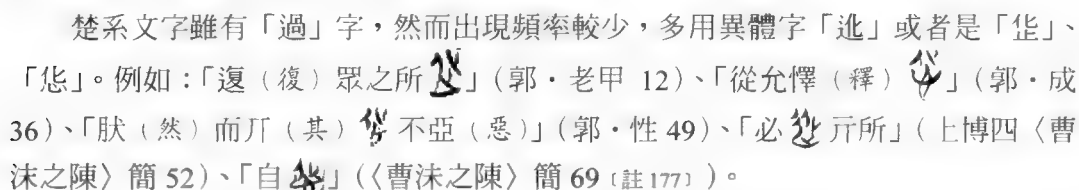 楚系文字雖有「過」字，然而出現頻率較少，多用異體字「迆」或者是「𠌲」、
「㤳」。例如：「復（復）眾之所」（郭．老甲 12）、「從允懌（釋）」（郭．成
36）、「肰（然）而丌（其）不亞（惡）」（郭．性 49）、「必亓所」（上博四〈曹
沫之陳〉簡 52）、「自」（〈曹沫之陳〉簡 69〔註 177〕）。